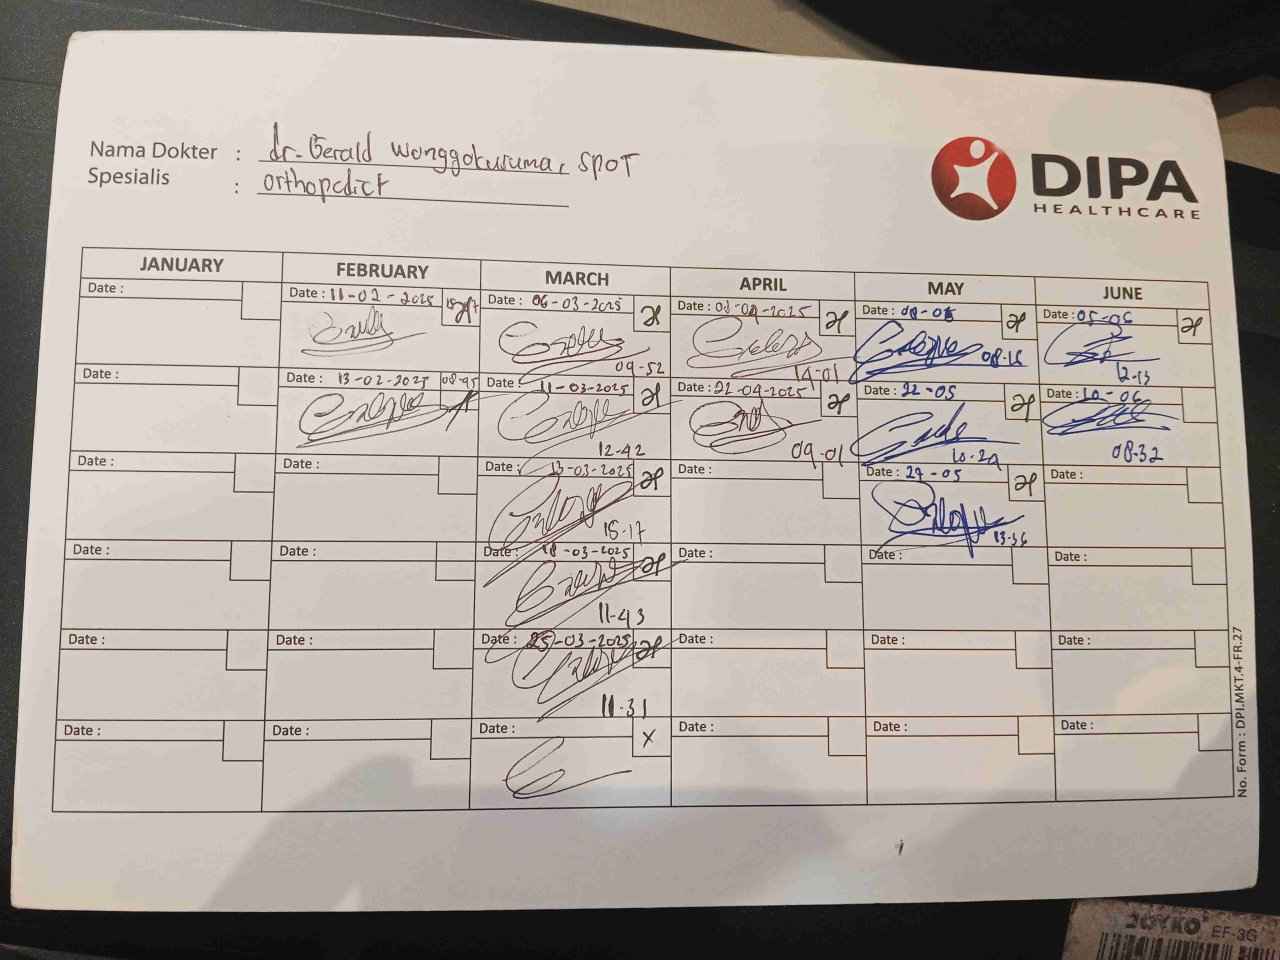 Nama Dokter : dr. Gerald Wonggokusuma, SpOT
Spesialis : Orthopedict
DIPA
HEALTHCARE
JANUARY FEBRUARY MARCH APRIL MAY JUNE
Date : Date : 11-02-2025 Date : 06-03-2025 Date : 2025 Date : 08-05 Date : 05-06
09-52 14-01 08-16 12-13
Date : Date : 13-02-2025 Date : 11-03-2025 Date : 22-04-2025 Date : 22-05 Date : 10-06
12-42 09-01 10-29 08-32
Date : Date : Date : 13-03-2025 Date : Date : 27-05 Date :
15-17 13-36
Date : Date : Date : 18-03-2025 Date : Date : Date :
11-43
Date : Date : Date : 25-03-2025 Date : Date : Date :
11-31
Date : Date : Date : X Date : Date : Date :
No. Form : DPI.MKT.4-FR.27
JOYKO EF-3G